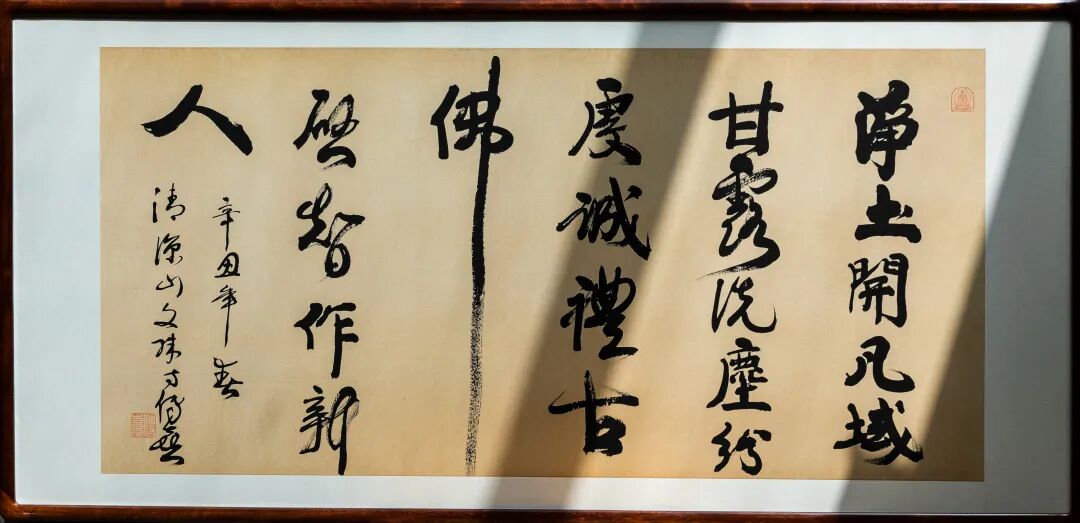 淨土開凡域
甘露洗塵紛
虔誠禮古
佛
啓智作新
人
辛丑年春
清涼山文殊寺傳